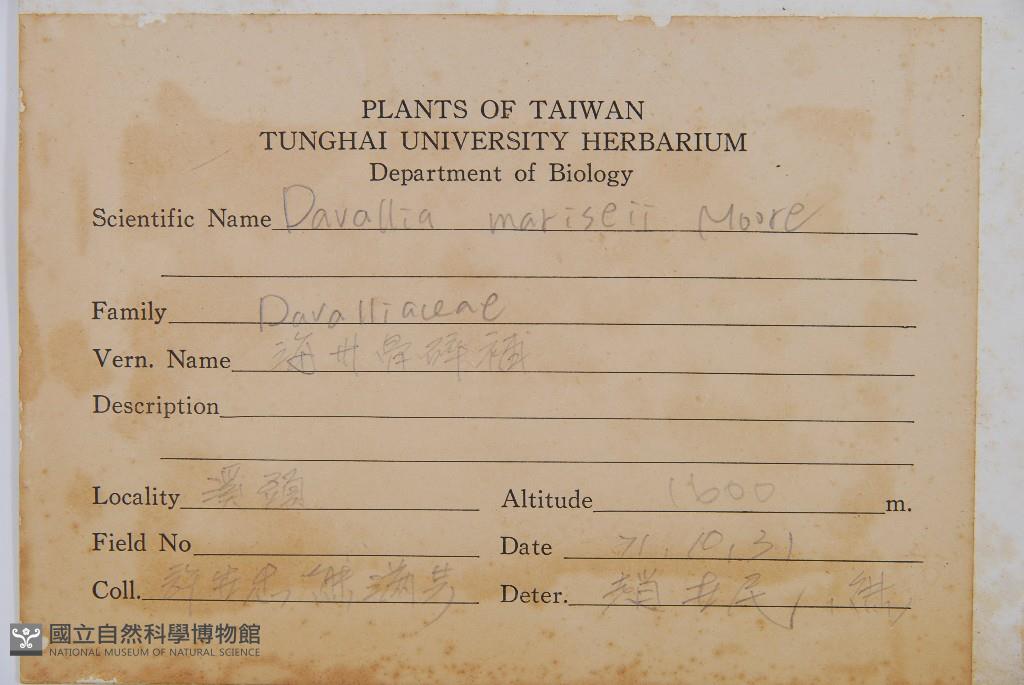 PLANTS OF TAIWAN
TUNGHAI UNIVERSITY HERBARIUM
Department of Biology
Scientific Name Davallia mariseii Moore
Family Davalliaceae
Vern. Name 海州骨碎補
Description
Locality 溪頭 Altitude 1600 m.
Field No Date 71.10.31
Coll. 許 忠 熊滿芳
Deter. 趙 民, 熊
國立自然科學博物館
NATIONAL MUSEUM OF NATURAL SCIENCE